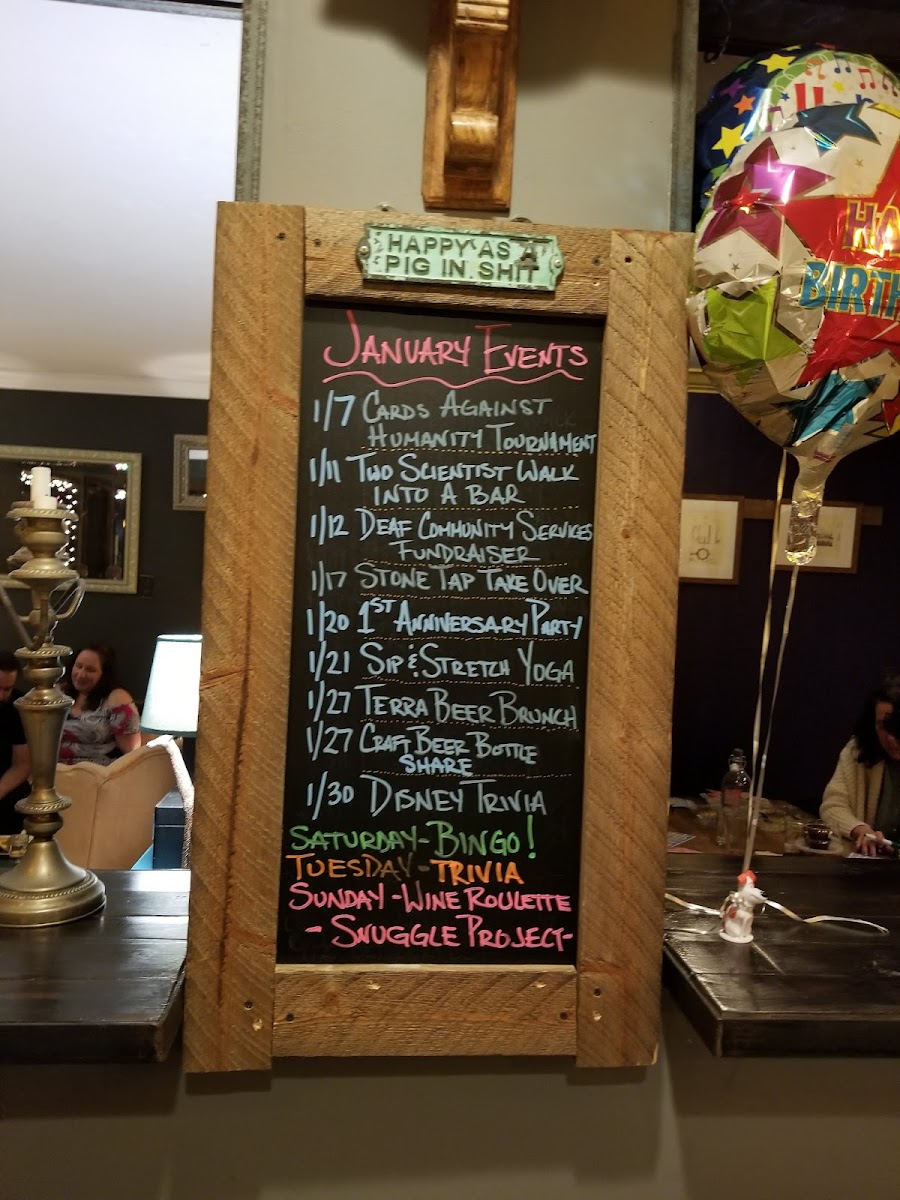 HAPPY AS A
PIG IN SHIT
JANUARY EVENTS
1/7 CARDS AGAINST
HUMANITY TOURNAMENT
1/11 TWO SCIENTIST WALK
INTO A BAR
1/12 DEAF COMMUNITY SERVICES
FUNDRAISER
1/17 STONE TAP TAKE OVER
1/20 1ST ANNIVERSARY PARTY
1/21 SIP & STRETCH YOGA
1/27 TERRA BEER BRUNCH
1/27 CRAFT BEER BOTTLE
SHARE
1/30 DISNEY TRIVIA
SATURDAY-BINGO!
TUESDAY-TRIVIA
SUNDAY-WINE ROULETTE
- SNUGGLE PROJECT-